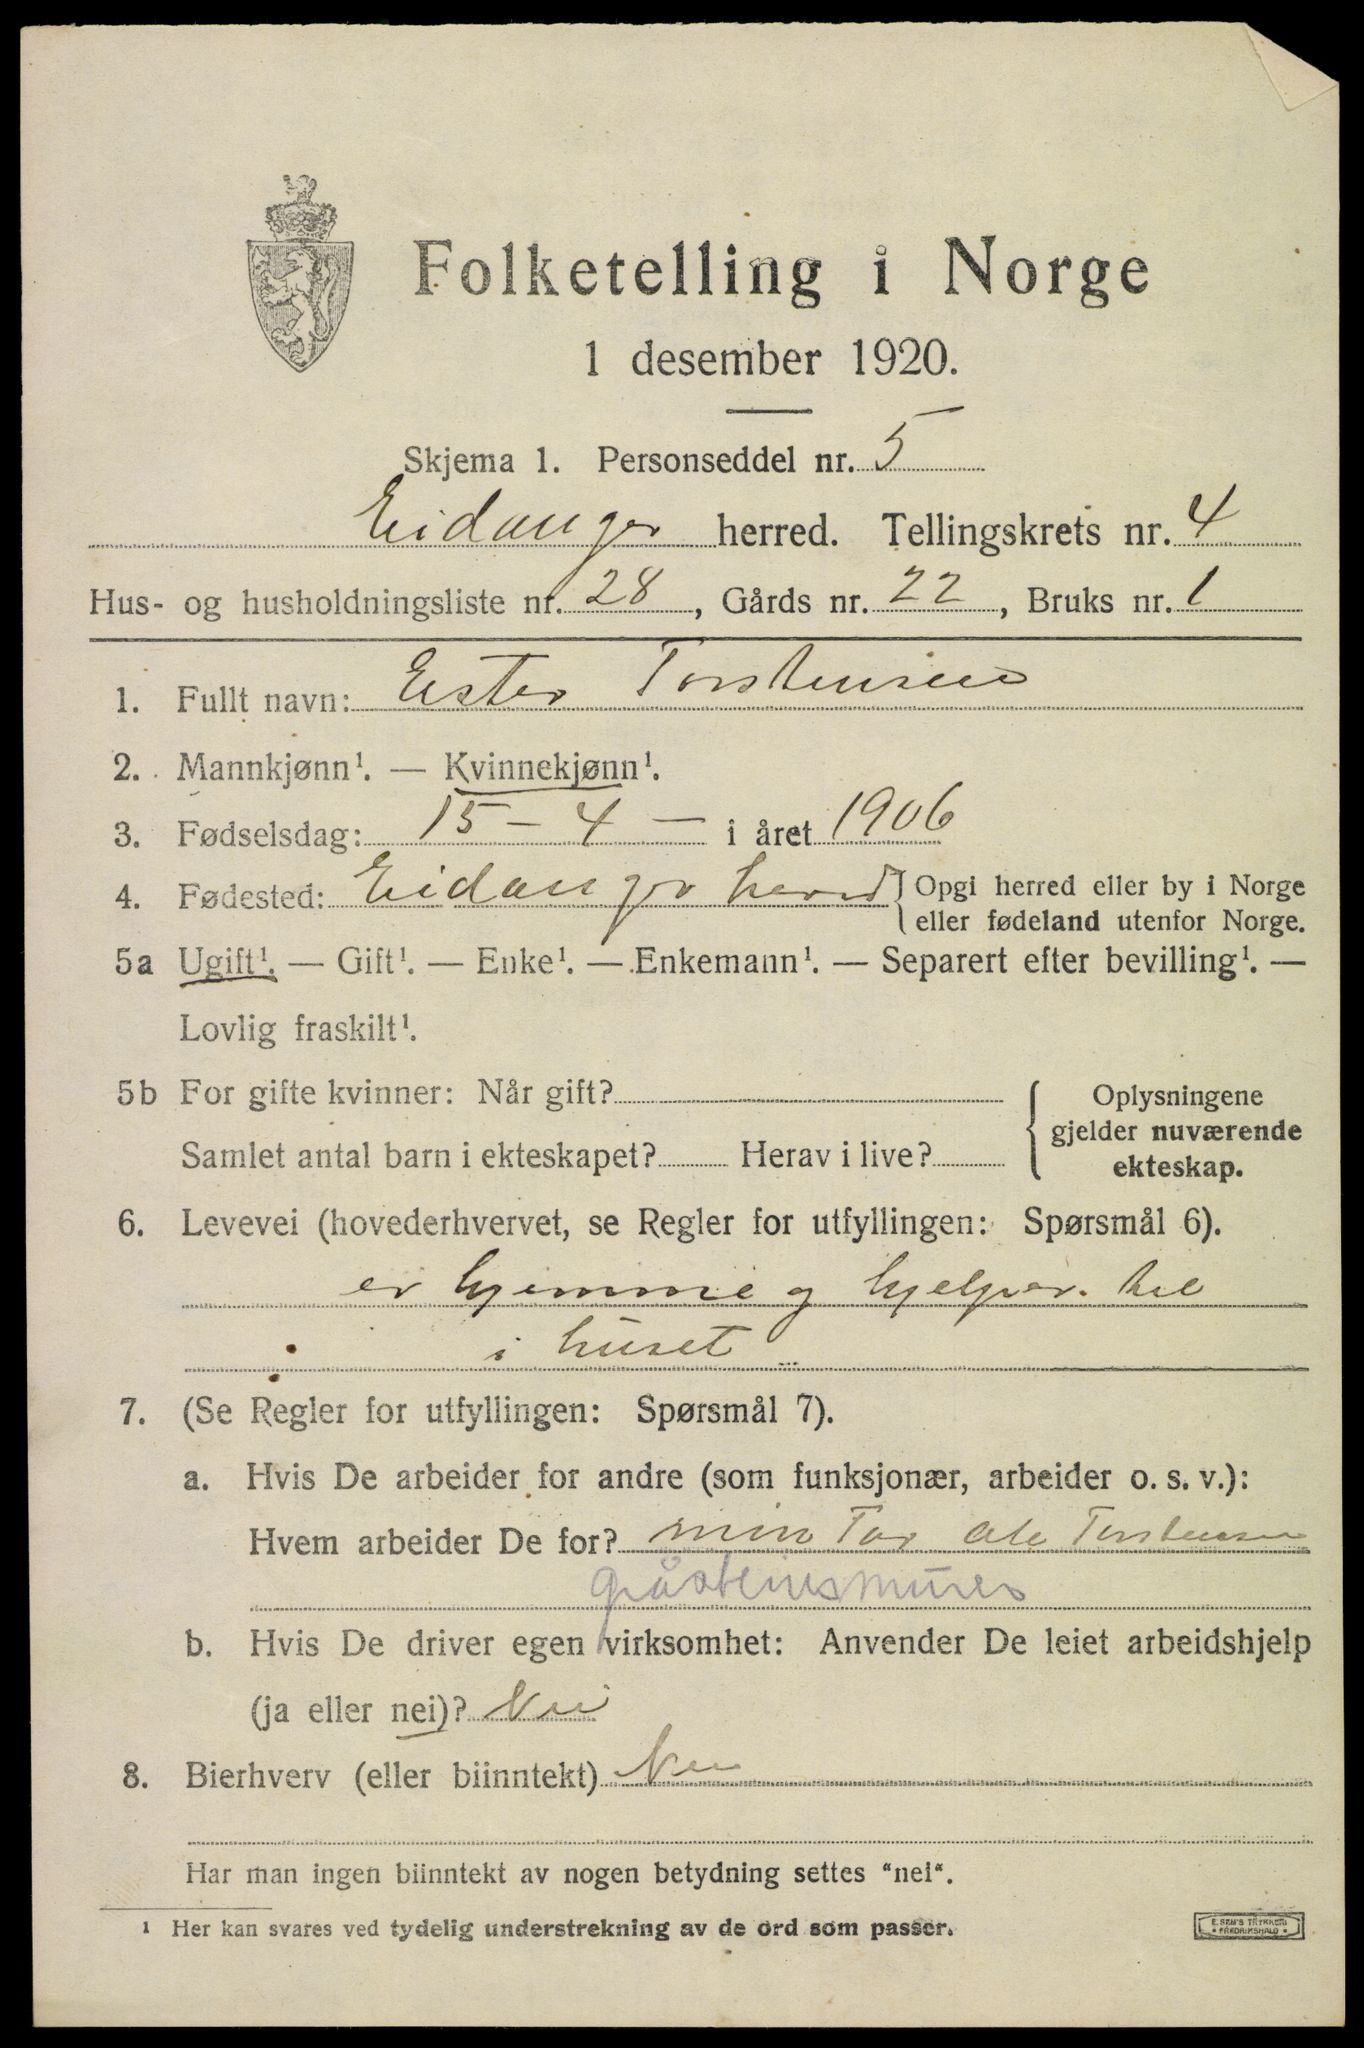 Folketelling i Norge
1 desember 1920.
Skjema 1. Personseddel nr. 5
Eidanger herred. Tellingskrets nr. 4
Hus- og husholdningsliste nr. 28, Gårds nr. 22, Bruks nr. 1
1. Fullt navn: Ester Torstensen
2. Mannkjønn¹. — Kvinnekjønn¹.
3. Fødselsdag: 15 – 4 – i året 1906
4. Fødested: Eidanger herred { Opgi herred eller by i Norge
eller fødeland utenfor Norge.
5a Ugift¹. — Gift¹. — Enke¹. — Enkemann¹. — Separert efter bevilling¹. —
Lovlig fraskilt¹.
5b For gifte kvinner: Når gift?
Samlet antal barn i ekteskapet? Herav i live?
Oplysningene
gjelder nuværende
ekteskap.
6. Levevei (hovederhvervet, se Regler for utfyllingen: Spørsmål 6).
er hjemme og hjelper til
i huset
7. (Se Regler for utfyllingen: Spørsmål 7).
a. Hvis De arbeider for andre (som funksjonær, arbeider o. s. v.):
Hvem arbeider De for? min Far Ole Torstensen
gråsteinsmurer
b. Hvis De driver egen virksomhet: Anvender De leiet arbeidshjelp
(ja eller nei)? Nei
8. Bierhverv (eller biinntekt) Nei
Har man ingen biinntekt av nogen betydning settes “nei“.
¹ Her kan svares ved tydelig understrekning av de ord som passer.
E. SEM'S TRYKKERI
FREDRIKSHALD